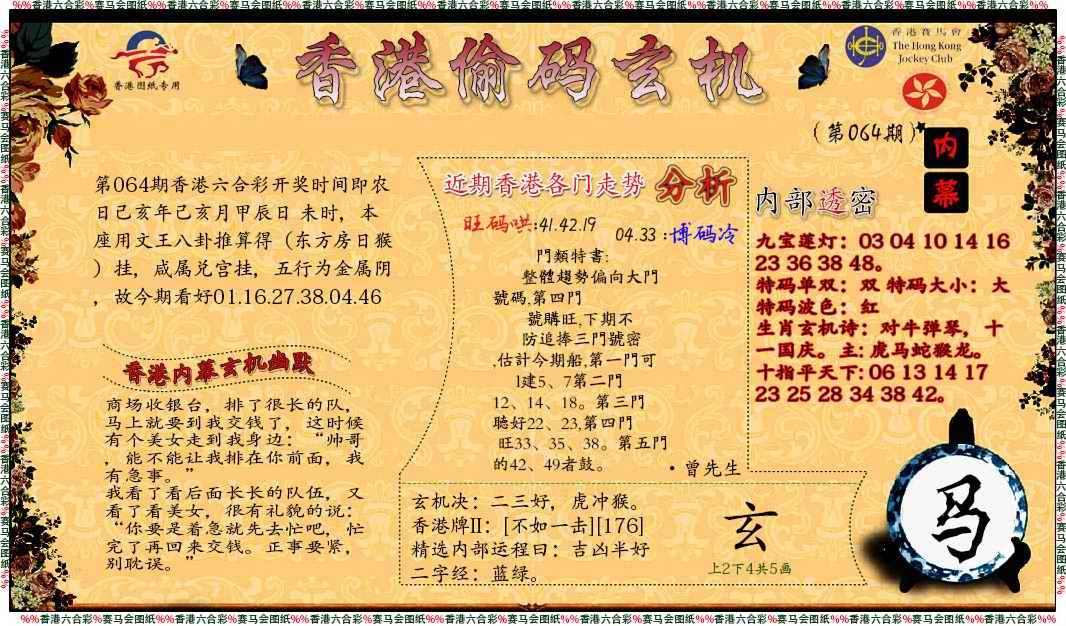 %%香港六合彩%赛马会图纸%%香港六合彩%赛马会图纸%%香港六合彩%赛马会图纸%%香港六合彩%赛马会图纸%%香港六合彩%赛马会图纸%%香港六合彩%赛马会图纸%%香港六合彩%%
香港图纸专用
香港偷码玄机
香港賽馬會
The Hong Kong
Jockey Club
(第064期)
内
幕
第064期香港六合彩开奖时间即农
日己亥年己亥月甲辰日 未时，本
座用文王八卦推算得（东方房日猴
）挂，咸属兑宫挂，五行为金属阴
，故今期看好01.16.27.38.04.46
香港内幕玄机幽默
商场收银台，排了很长的队，
马上就要到我交钱了，这时候
有个美女走到我身边：“帅哥
，能不能让我排在你前面，我
有急事。”
我看了看后面长长的队伍，又
看了看美女，很有礼貌的说：
“你要是着急就先去忙吧，忙
完了再回来交钱。正事要紧，
别耽误。”
近期香港各门走势 分析
旺码哄:41.42.19
04.33 :博码冷
門類特書:
整體趨勢偏向大門
號碼,第四門
號購旺,下期不
防追捧三門號密
,估計今期船,第一門可
1建5、7第二門
12、14、18。第三門
聽好22、23,第四門
旺33、35、38。第五門
的42、49者鼓。
・曾先生
玄机决：二三好，虎冲猴。
香港牌II：[不如一击][176]
精选内部运程曰：吉凶半好
二字经：蓝绿。
玄
上2下4共5画
内部透密
九宝莲灯：03 04 10 14 16
23 36 38 48。
特码单双：双 特码大小：大
特码波色：红
生肖玄机诗：对牛弹琴，十
一国庆。主: 虎马蛇猴龙。
十指平天下: 06 13 14 17
23 25 28 34 38 42。
马
%%香港六合彩%赛马会图纸%%香港六合彩%赛马会图纸%%香港六合彩%赛马会图纸%%香港六合彩%赛马会图纸%%香港六合彩%赛马会图纸%%香港六合彩%赛马会图纸%%香港六合彩%%